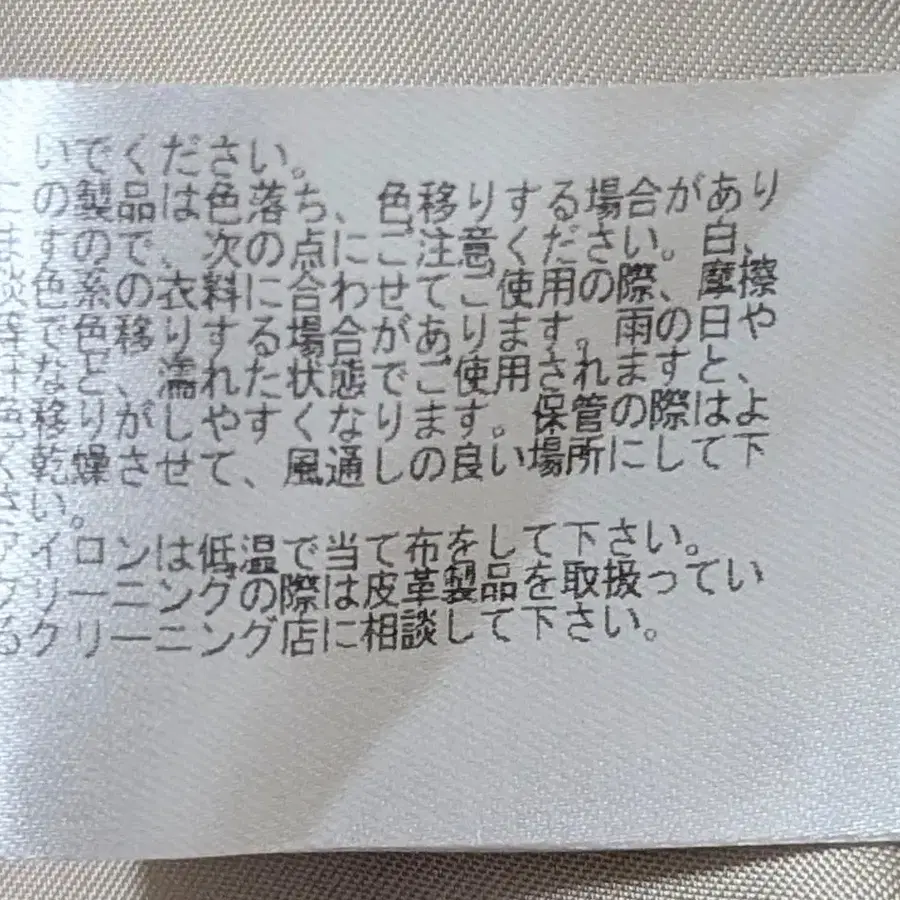 いでください。
この製品は色落ち、色移りする場合があり
ますので、次の点にご注意ください。白、
淡色系の衣料に合わせてご使用の際、摩擦
等で色移りする場合があります。雨の日や
汗など、濡れた状態でご使用されますと、
色移りがしやすくなります。保管の際はよ
く乾燥させて、風通しの良い場所にして下
さい。
アイロンは低温で当て布をして下さい。
クリーニングの際は皮革製品を取扱ってい
るクリーニング店に相談して下さい。